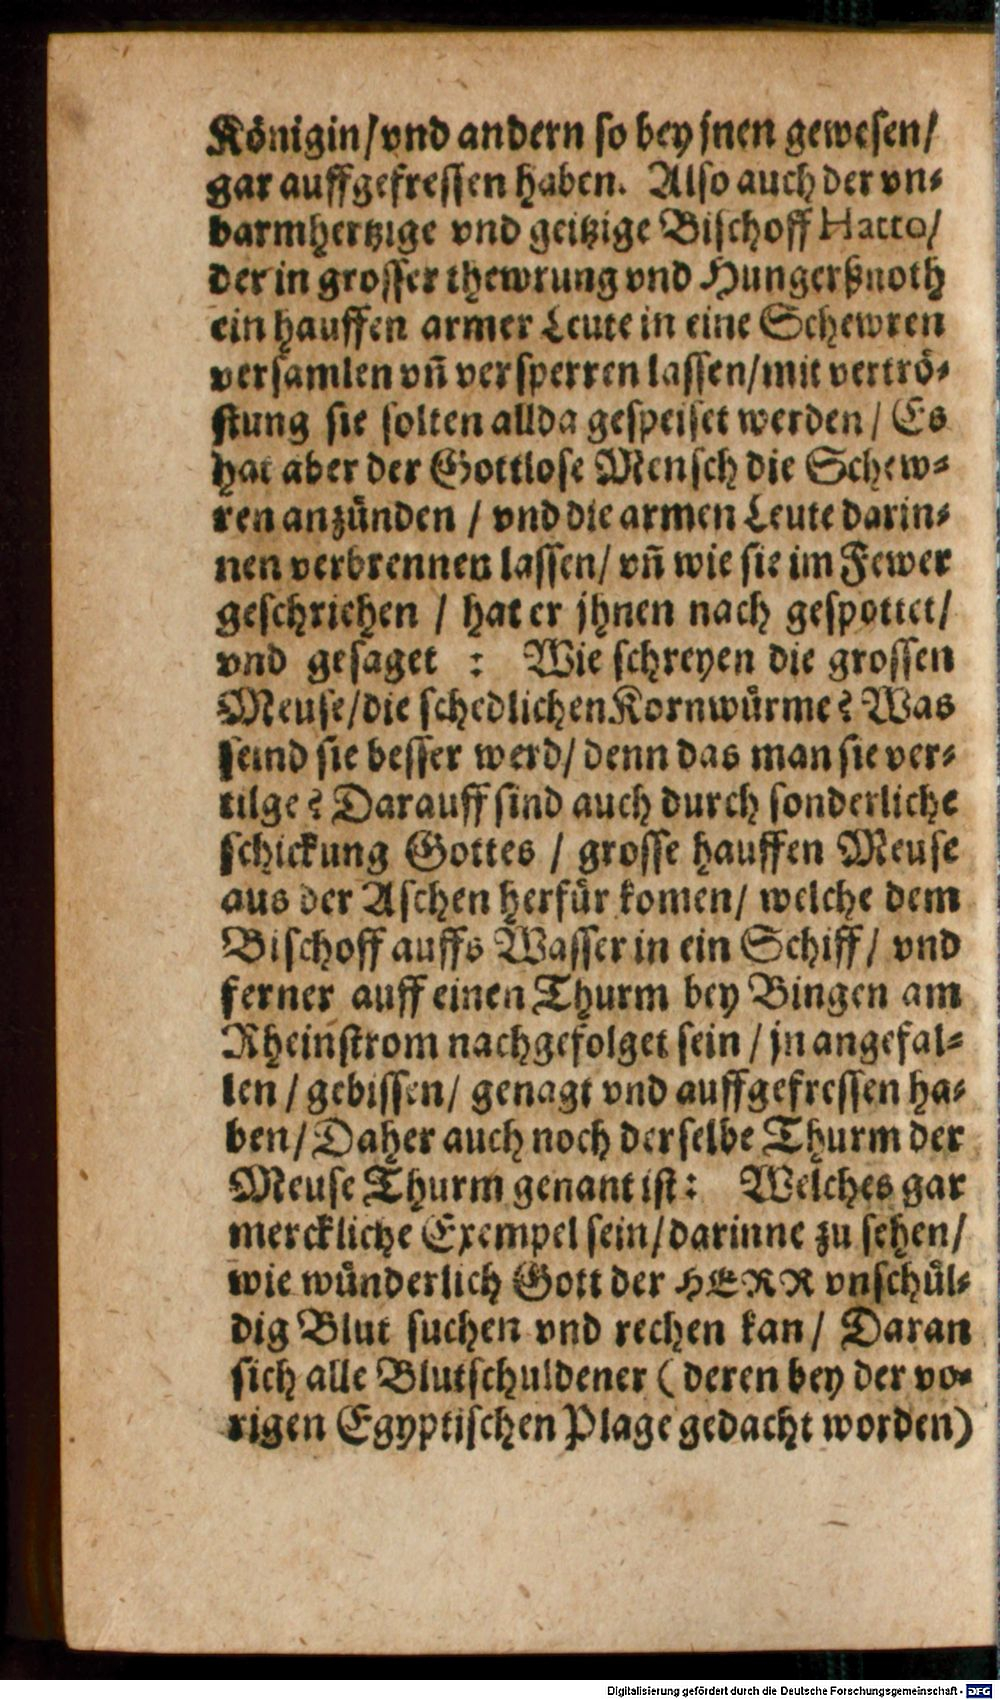 Königin/vnd andern so bey jnen gewesen/
gar auffgefressen haben. Also auch der vn-
barmhertzige vnd geitzige Bischoff Hatto/
der in grosser thewrung vnd Hungerßnoth
ein hauffen armer Leute in eine Schewren
versamlen vñ versperren lassen/mit vertrö-
stung sie solten allda gespeiset werden / Es
hat aber der Gottlose Mensch die Schew-
ren anzünden / vnd die armen Leute darin-
nen verbrennen lassen/ vñ wie sie im Fewer
geschriehen / hat er jhnen nach gespottet/
vnd gesaget : Wie schreyen die grossen
Meuse/die schedlichen Kornwürme? Was
seind sie besser werd/ denn das man sie ver-
tilge? Darauff sind auch durch sonderliche
schickung Gottes / grosse hauffen Meuse
aus der Aschen herfür komen/ welche dem
Bischoff auffs Wasser in ein Schiff/ vnd
ferner auff einen Thurm bey Bingen am
Rheinstrom nachgefolget sein / jn angefal-
len / gebissen/ genagt vnd auffgefressen ha-
ben/ Daher auch noch derselbe Thurm der
Meuse Thurm genant ist: Welches gar
merckliche Exempel sein/darinne zu sehen/
wie wünderlich Gott der HERR vnschül-
dig Blut suchen vnd rechen kan/ Daran
sich alle Blutschuldener ( deren bey der vo-
rigen Egyptischen Plage gedacht worden)
Digitalisierung gefördert durch die Deutsche Forschungsgemeinschaft - DFG